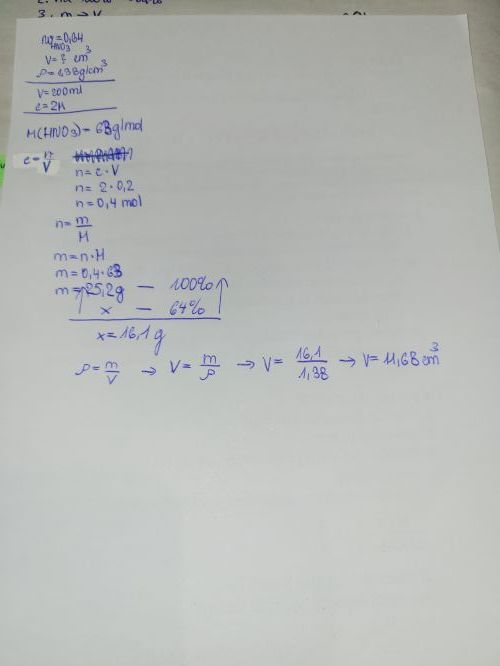 3. m → V
w = 0,64
HNO3
V = ? cm³
ρ = 1,38 g/cm³
V = 200 ml
c = 2M
M(HNO3) = 63 g/mol
c = n/V
n = c · V
n = 2 · 0,2
n = 0,4 mol
n = m/M
m = n · M
m = 0,4 · 63
m = 25,2 g — 100%
x — 64%
x = 16,1 g
ρ = m/V → V = m/ρ → V = 16,1/1,38 → V = 11,68 cm³